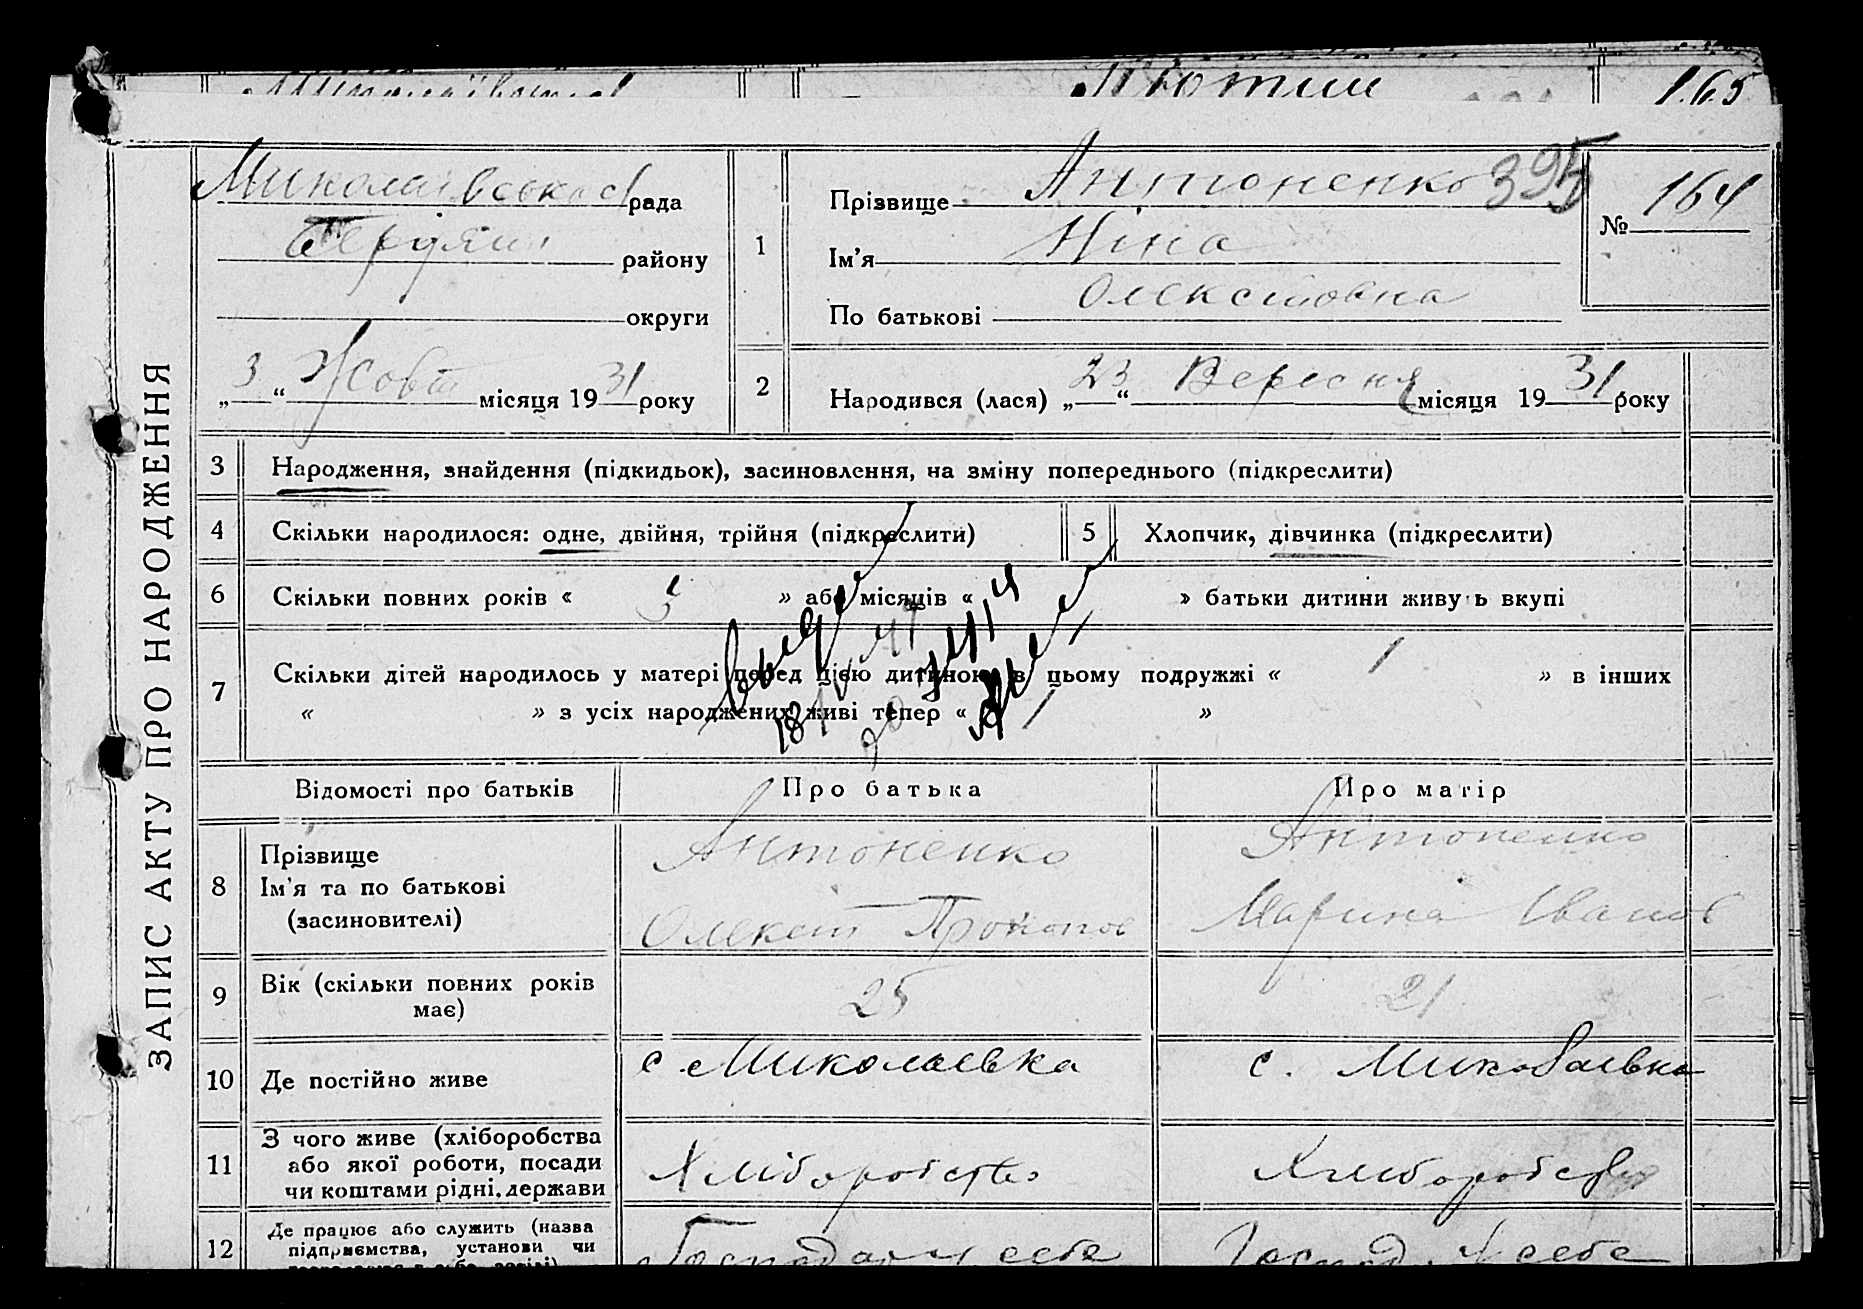 165
ЗАПИС АКТУ ПРО НАРОДЖЕННЯ
Миколаївської рада
Бердян району
округи
„ 3 “ Жовт місяця 19 31 року
1
Прізвище Антоненко 395
Ім'я Ніна
По батькові
№ 164
2
Народився (лася) „ 23 “ Вересня місяця 19 31 року
3 Народження, знайдення (підкидьок), засиновлення, на зміну попереднього (підкреслити)
4 Скільки народилося: одне, двійня, трійня (підкреслити)
5 Хлопчик, дівчинка (підкреслити)
6 Скільки повних років « 5 » або місяців « » батьки дитини живуть вкупі
7 Скільки дітей народилось у матері перед цією дитиною в цьому подружжі « 1 » в інших
« » з усіх народжених живі тепер « 1 »
Відомості про батьків
Про батька
Про матір
8 Прізвище
Ім'я та по батькові
(засиновителі)
Антоненко
Олексій Прокопов
Антоненко
Марина Іванов
9 Вік (скільки повних років
має)
25
21
10 Де постійно живе
с. Миколаевка
с. Миколаевка
11 З чого живе (хліборобства
або якої роботи, посади
чи коштами рідні, держави
Хліборобство
Хліборобство
12 Де працює або служить (назва
підприємства, установи чи
себе
себе